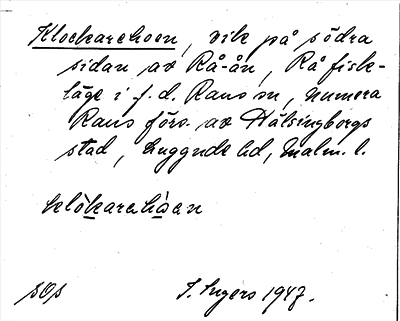 Klockarehoen, vik på södra
sidan av Rå-ån, Rå fisk-
läge i f.d. Raus sn, numera
Raus förs. av Hälsingborgs
stad, Luggude hd, Malm. l.
sOs
I. Ingers 1947.